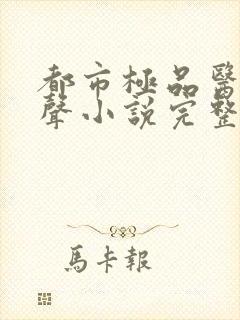 都市極品醫
聲小說完整
馬卡報